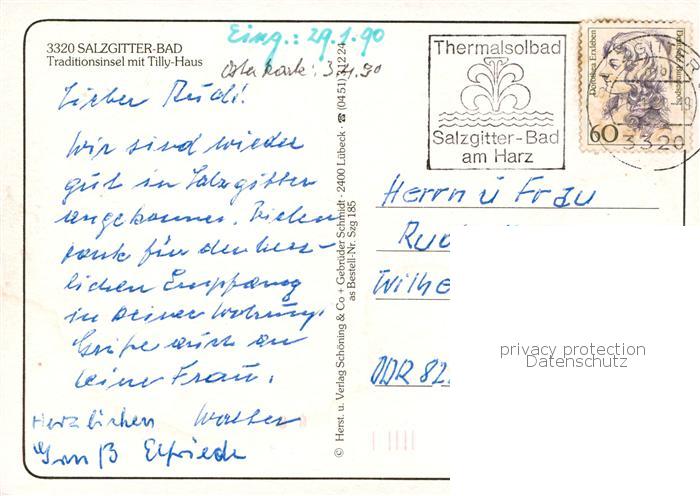 3320 SALZGITTER-BAD
Traditionsinsel mit Tilly-Haus
Eing.: 29.1.90
Osterkarte: 3.4.90
Lieber Rudi!
Wir sind wieder
gut in Salzgitter
angekommen. Vielen
Dank für den herz-
lichen Empfang
in Deiner Wohnung.
Grüße auch an
Deine Frau.
Herzlichen Walter
Gruß Elfriede
© Herst. u. Verlag Schöning & Co + Gebrüder Schmidt · 2400 Lübeck · ☎ (0451)
as Bestell-Nr. Szg 185
Thermalsolbad
Salzgitter-Bad
am Harz
Dorothea Erxleben
Deutsche Bundespost
60
3320
Herrn u Frau
Wilhe
DDR 82
privacy protection
Datenschutz